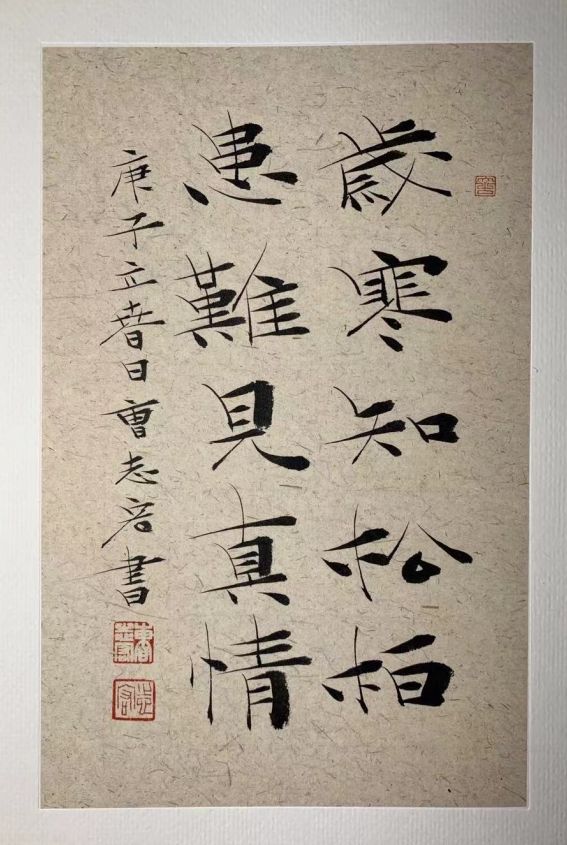 歲寒知松柏
患難見真情
庚子立春日曹志宏書